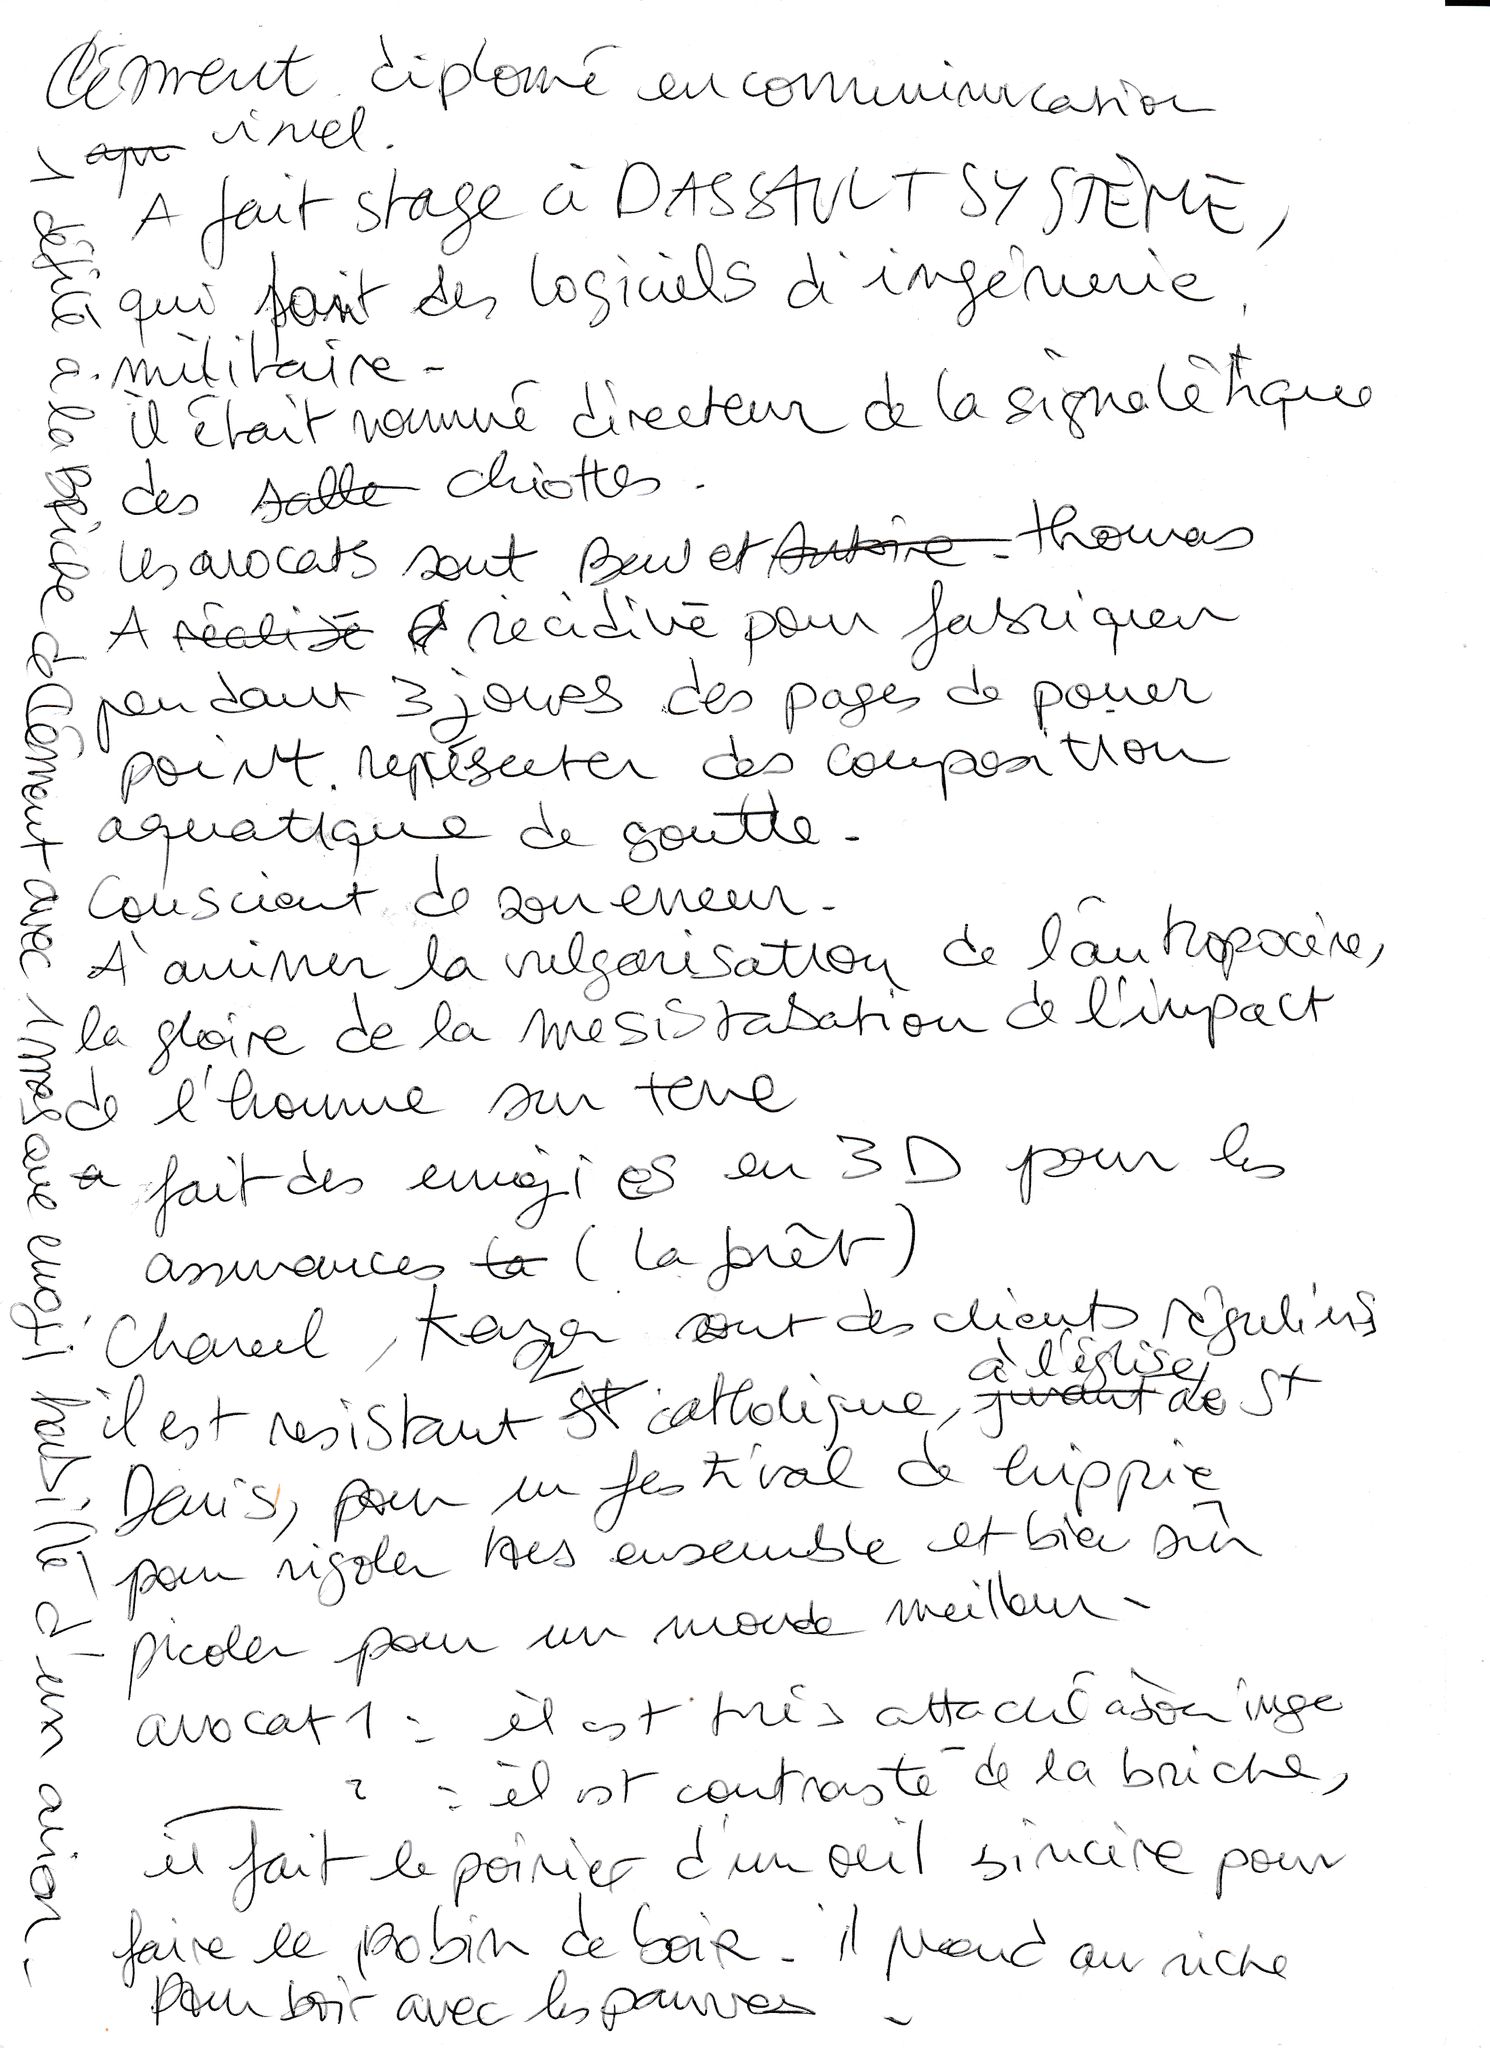 Clément diplomé en communication
visuel.
A fait stage à DASSAULT SYSTÈME,
qui font des logiciels d'ingénierie
militaire -
il était nommé directeur de la signalètique
des salle chiottes.
les avocats sont Ben et Antoine - thomas
A réalisé récidivé pour fabriquer
pendant 3 joures des pages de power
point. représenter des composition
aquatique de goutte -
Conscient de son erreur -
A animer la vulgarisation de l'antropocène,
la gloire de la de l'impact
de l'homme sur terre
a fait des emogi es en 3D pour les
assurances la (la forêt)
Chanel, sont des clients réguliers
il est resistant St catholique, à l'église jurant de St
Denis, pour un festival de hippie
pour rigoler tres ensemble et bien sûr
picoler pour un monde meilleur -
avocat 1 : il est très attaché à son
2 : il est contrasté de la briche,
il fait le poirier d'un oeil sincère pour
faire le robin de boie - il prend au riche
pour boir avec les pauvres -
1 défilé à la Briche de Clément avec 1 masque emogi habillé d'eux avion -